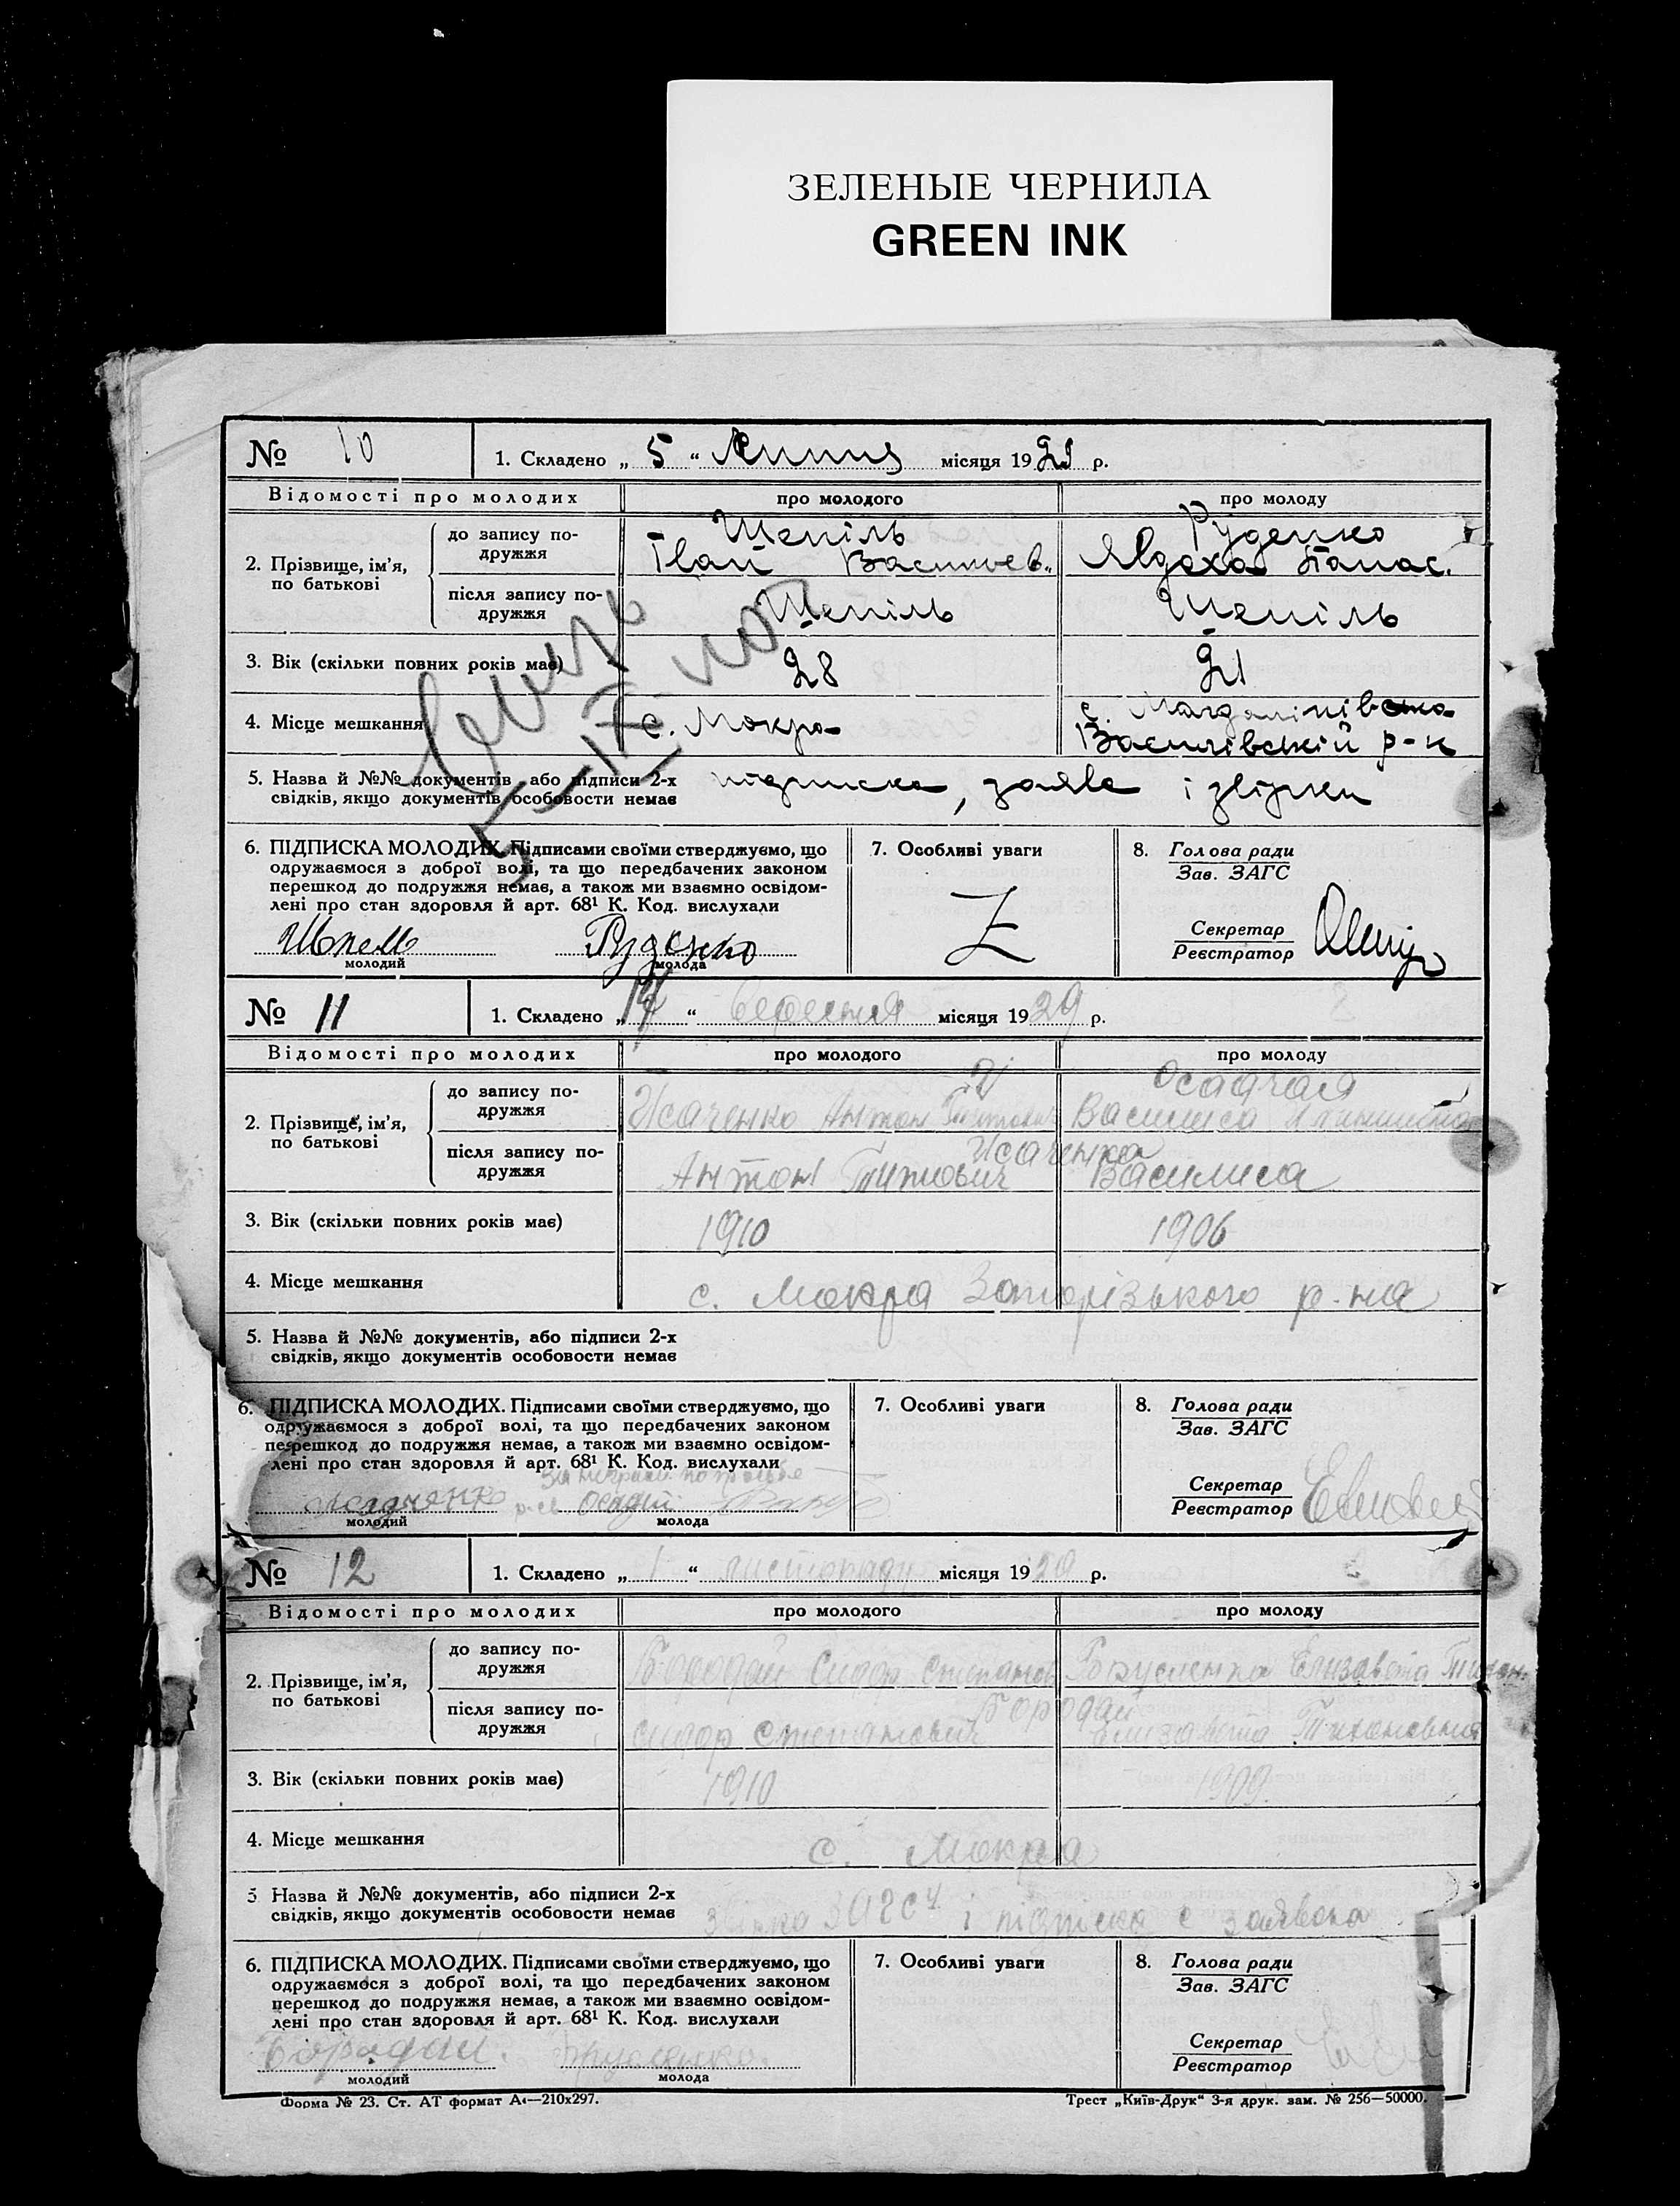 ЗЕЛЕНЫЕ ЧЕРНИЛА
GREEN INK
№ 10 1. Складено „ 5 “ Липня місяця 1929 р.
Відомості про молодих про молодого про молоду
2. Прізвище, ім’я, по батькові
до запису по-
дружжя
Шепіль
Іван Васильев.
Руденко
Явдоха Панас.
після запису по-
дружжя
Шепіль Шепіль
3. Вік (скільки повних років має) 28 21
4. Місце мешкання с. Мокра
с.
Василівській р-н
5. Назва й №№ документів, або підписи 2-х підписка, заява і звірки
свідків, якщо документів особовости немає
6. ПІДПИСКА МОЛОДИХ. Підписами своїми стверджуємо, що
одружаємося з доброї волі, та що передбачених законом
перешкод до подружжя немає, а також ми взаємно освідом-
лені про стан здоровля й арт. 68¹ К. Код. вислухали
Руденко
молодий молода
7. Особливі уваги
Z
8. Голова ради
Зав. ЗАГС
Секретар
Реєстратор
№ 11 1. Складено „ “ вересня місяця 1929 р.
Відомості про молодих про молодого про молоду
2. Прізвище, ім’я, по батькові
до запису по-
дружжя
Исаченко Антон
Осадчая
Василиса
після запису по-
дружжя
Исаченко
Антон Титович Василиса
3. Вік (скільки повних років має) 1910 1906
4. Місце мешкання с. Мокра Запорізького р-на
5. Назва й №№ документів, або підписи 2-х
свідків, якщо документів особовости немає
6. ПІДПИСКА МОЛОДИХ. Підписами своїми стверджуємо, що
одружаємося з доброї волі, та що передбачених законом
перешкод до подружжя немає, а також ми взаємно освідом-
лені про стан здоровля й арт. 68¹ К. Код. вислухали
молодий молода
7. Особливі уваги
8. Голова ради
Зав. ЗАГС
Секретар
Реєстратор
№ 12 1. Складено „ 1 “ листопаду місяця 19 р.
Відомості про молодих про молодого про молоду
2. Прізвище, ім’я, по батькові
до запису по-
дружжя
Бородай Сидор Степанов Брусленко Елизавета Тихон
після запису по-
дружжя
Бородай
Сидор Степанович Елизавета Тихоновна
3. Вік (скільки повних років має) 1910 1909.
4. Місце мешкання с. Мокра
5 Назва й №№ документів, або підписи 2-х
свідків, якщо документів особовости немає
і підписка є заявока
6. ПІДПИСКА МОЛОДИХ. Підписами своїми стверджуємо, що
одружаємося з доброї волі, та що передбачених законом
перешкод до подружжя немає, а також ми взаємно освідом-
лені про стан здоровля й арт. 68¹ К. Код. вислухали
Бородай.
молодий молода
7. Особливі уваги
8. Голова ради
Зав. ЗАГС
Секретар
Реєстратор
Форма № 23. Ст. АТ формат А₄—210х297. Трест „Київ-Друк“ 3-я друк. зам. № 256—50000.